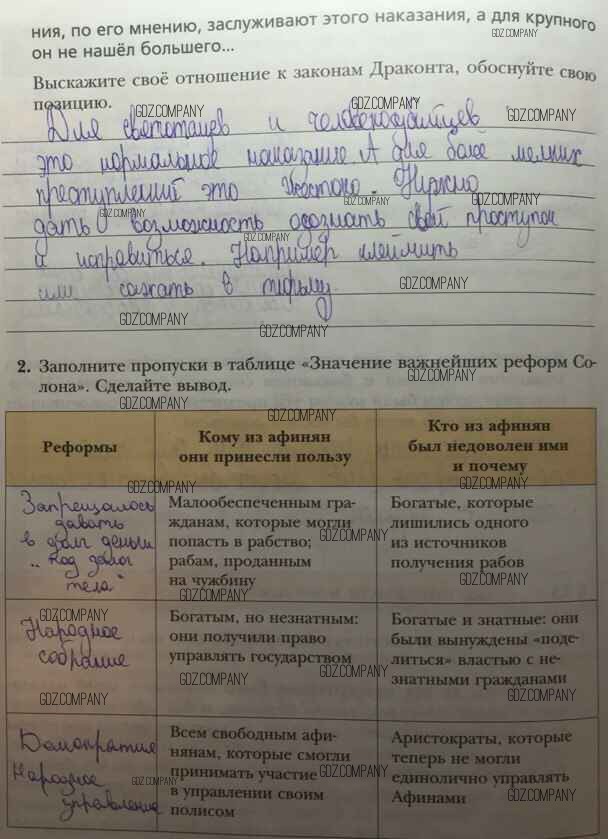 ния, по его мнению, заслуживают этого наказания, а для крупного
он не нашёл большего...
GDZ.COMPANY
Выскажите своё отношение к законам Драконта, обоснуйте свою
позицию.
GDZ.COMPANY
GDZ.COMPANY
GDZ.COMPANY
Для святотацев и человекоубийцев
это нормальное наказание. А для более мелких
преступлений это жестоко. Нужно
дать возможность осознать свой проступок
и исправиться. Например клеймить
или сажать в тюрьму.
GDZ.COMPANY
GDZ.COMPANY
2. Заполните пропуски в таблице «Значение важнейших реформ Со-
лона». Сделайте вывод.
GDZ.COMPANY
GDZ.COMPANY
Реформы
Кому из афинян
они принесли пользу
Кто из афинян
был недоволен ими
и почему
Запрещалось
давать
в долг деньги
"под залог
тела"
Малообеспеченным гра-
жданам, которые могли
попасть в рабство;
рабам, проданным
на чужбину
Богатые, которые
лишились одного
из источников
получения рабов
GDZ.COMPANY
Народное
собрание
Богатым, но незнатным:
они получили право
управлять государством
Богатые и знатные: они
были вынуждены «поде-
литься» властью с не-
знатными гражданами
GDZ.COMPANY
GDZ.COMPANY
Демократия
Народное
управление
Всем свободным афи-
нянам, которые смогли
принимать участие
в управлении своим
полисом
Аристократы, которые
теперь не могли
единолично управлять
Афинами
GDZ.COMPANY
GDZ.COMPANY